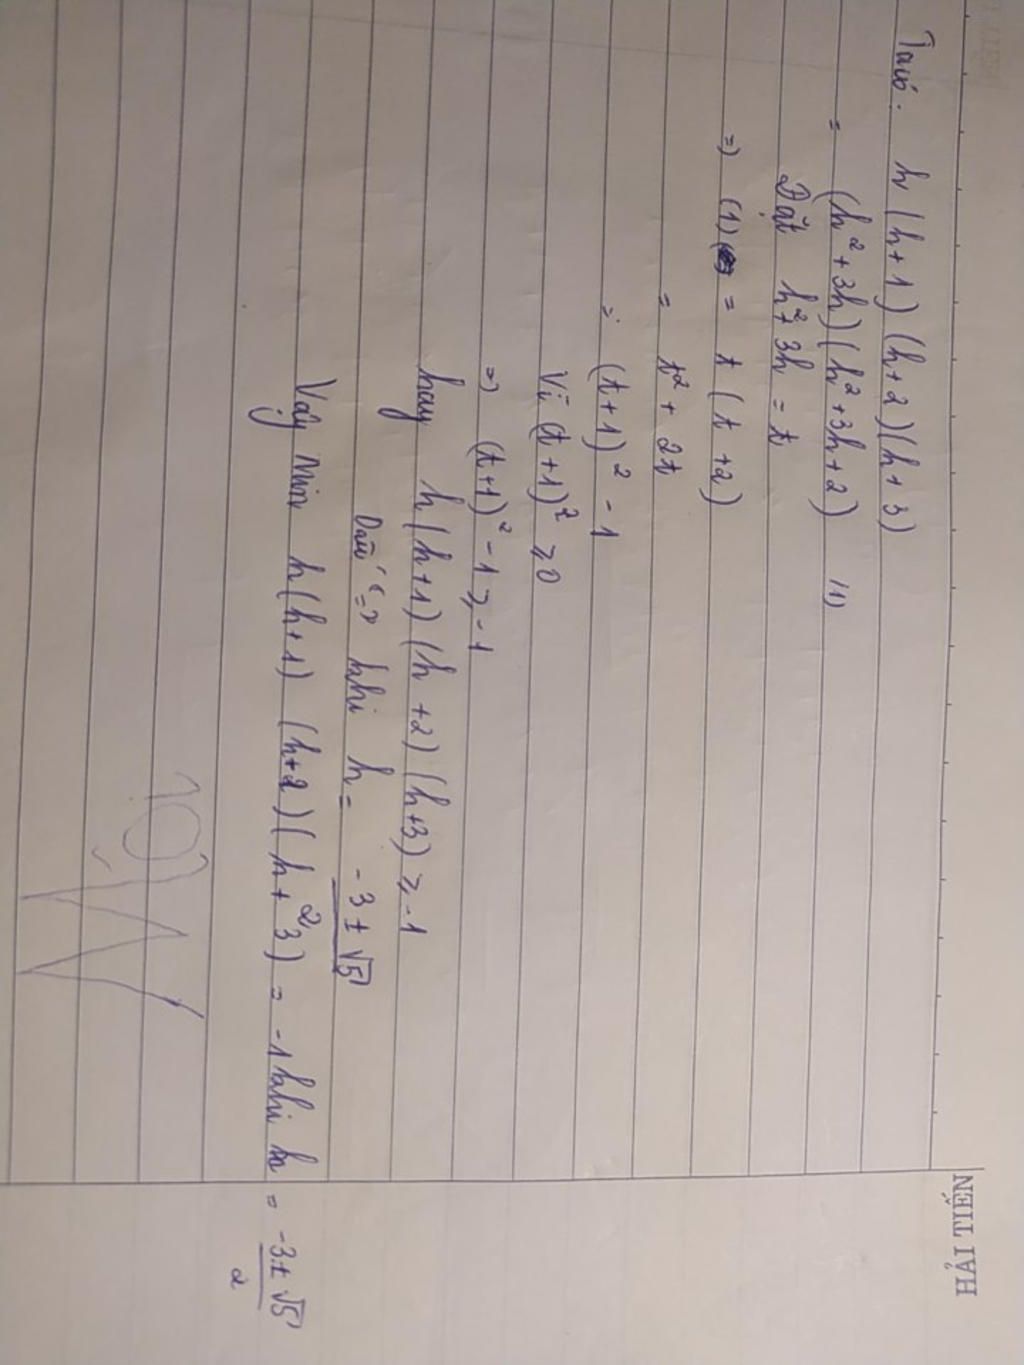 HẢI TIẾN
Ta có: h(h+1)(h+2)(h+3)
= (h²+3h)(h²+3h+2) (1)
Đặt h²+3h = t
=) (1) = t(t+2)
= t² + 2t
= (t+1)² - 1
Vì (t+1)² ≥ 0
=) (t+1)² - 1 ≥ -1
hay h(h+1)(h+2)(h+3) ≥ -1
Dấu "=" khi h = -3±√5
2
Vậy Min h(h+1)(h+2)(h+3) = -1 khi h = -3±√5
2